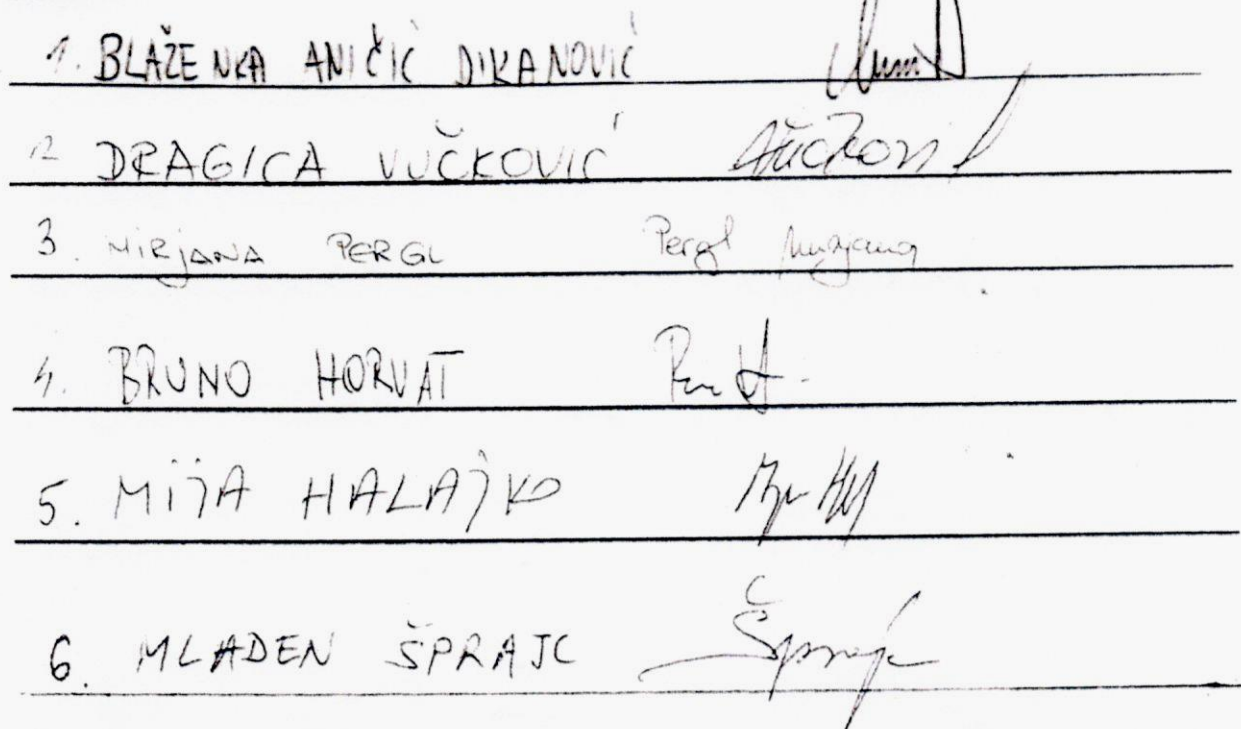 1. BLAŽENKA ANIČIĆ DIKANOVIĆ
2 DRAGICA VUČKOVIĆ Vučković
3. MIRJANA PERGL Pergl Mirjana
4. BRUNO HORVAT
5. MIJA HALAJKO
6. MLADEN ŠPRAJC Šprajc